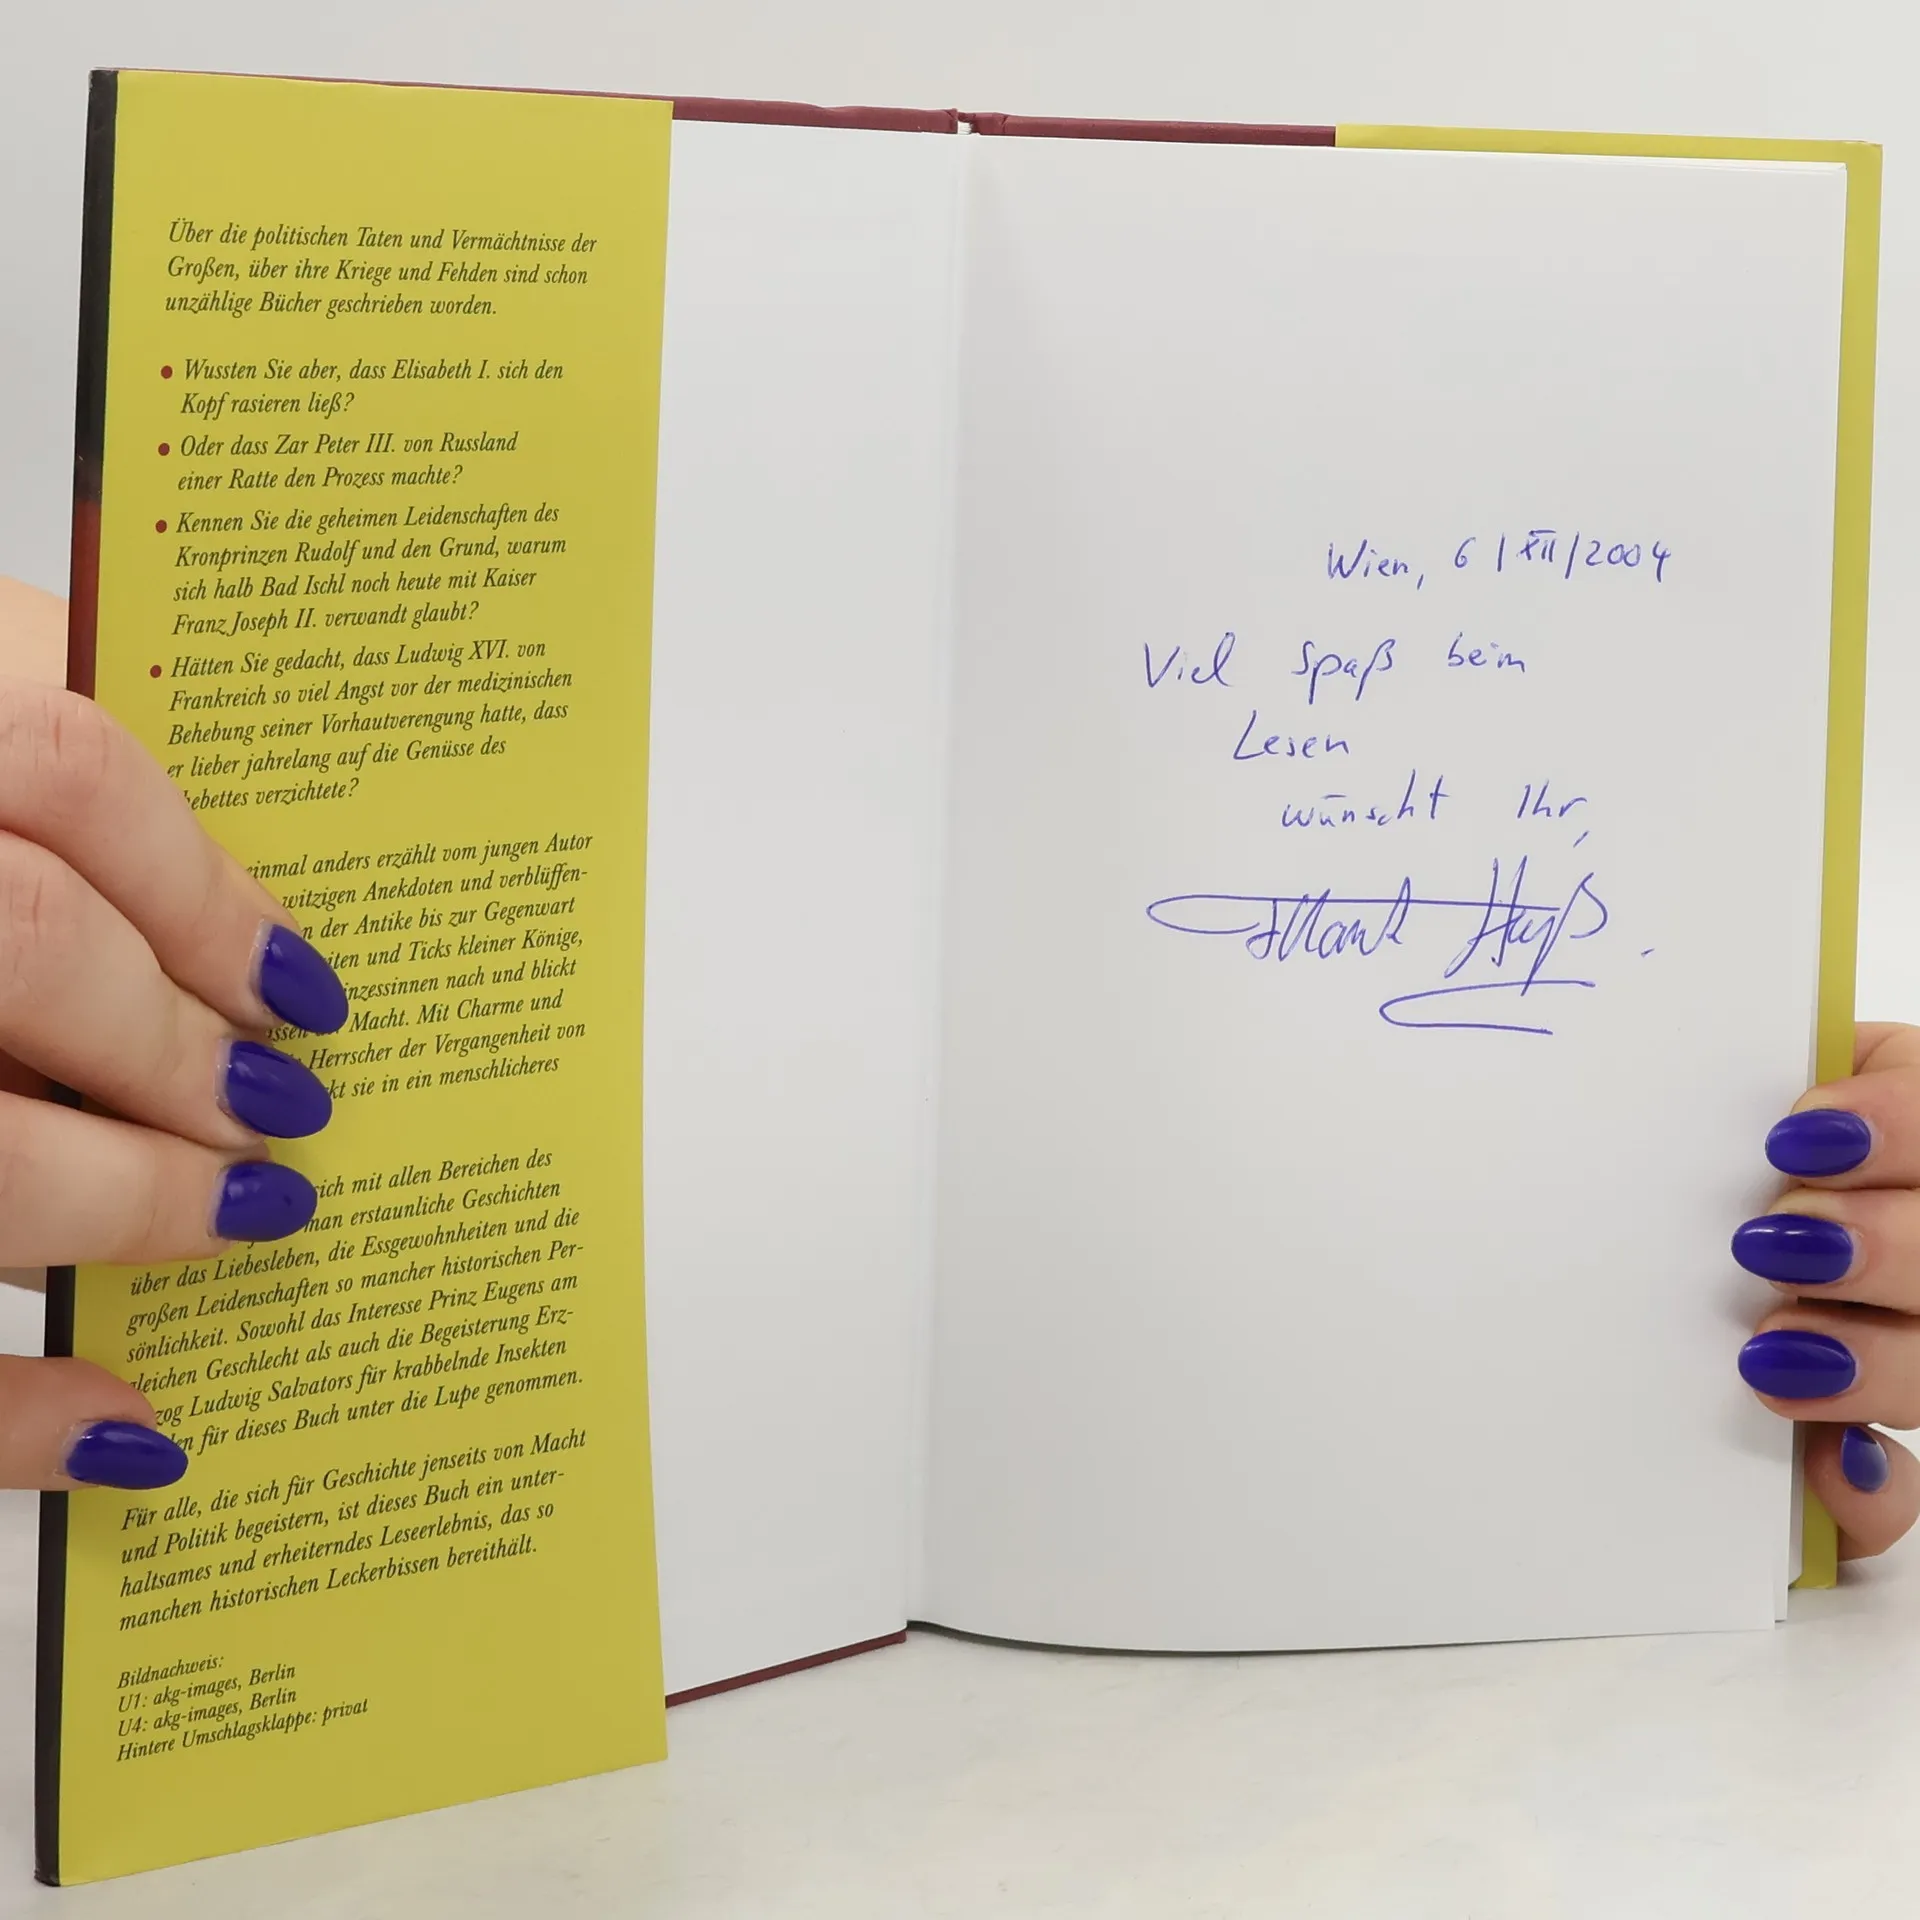 Über die politischen Taten und Vermächtnisse der
Großen, über ihre Kriege und Fehden sind schon
unzählige Bücher geschrieben worden.
• Wussten Sie aber, dass Elisabeth I. sich den
Kopf rasieren ließ?
• Oder dass Zar Peter III. von Russland
einer Ratte den Prozess machte?
• Kennen Sie die geheimen Leidenschaften des
Kronprinzen Rudolf und den Grund, warum
sich halb Bad Ischl noch heute mit Kaiser
Franz Joseph II. verwandt glaubt?
• Hätten Sie gedacht, dass Ludwig XVI. von
Frankreich so viel Angst vor der medizinischen
Behebung seiner Vorhautverengung hatte, dass
er lieber jahrelang auf die Genüsse des
hebettes verzichtete?
einmal anders erzählt vom jungen Autor
witzigen Anekdoten und verblüffen-
n der Antike bis zur Gegenwart
iten und Ticks kleiner Könige,
inzessinnen nach und blickt
Macht. Mit Charme und
Herrscher der Vergangenheit von
kt sie in ein menschlicheres
sich mit allen Bereichen des
man erstaunliche Geschichten
über das Liebesleben, die Essgewohnheiten und die
großen Leidenschaften so mancher historischen Per-
sönlichkeit. Sowohl das Interesse Prinz Eugens am
gleichen Geschlecht als auch die Begeisterung Erz-
zog Ludwig Salvators für krabbelnde Insekten
den für dieses Buch unter die Lupe genommen.
Für alle, die sich für Geschichte jenseits von Macht
und Politik begeistern, ist dieses Buch ein unter-
haltsames und erheiterndes Leseerlebnis, das so
manchen historischen Leckerbissen bereithält.
Bildnachweis:
U1: akg-images, Berlin
U4: akg-images, Berlin
Hintere Umschlagsklappe: privat
Wien, 6/XII/2004
Viel Spaß beim
Lesen
wünscht Ihr,